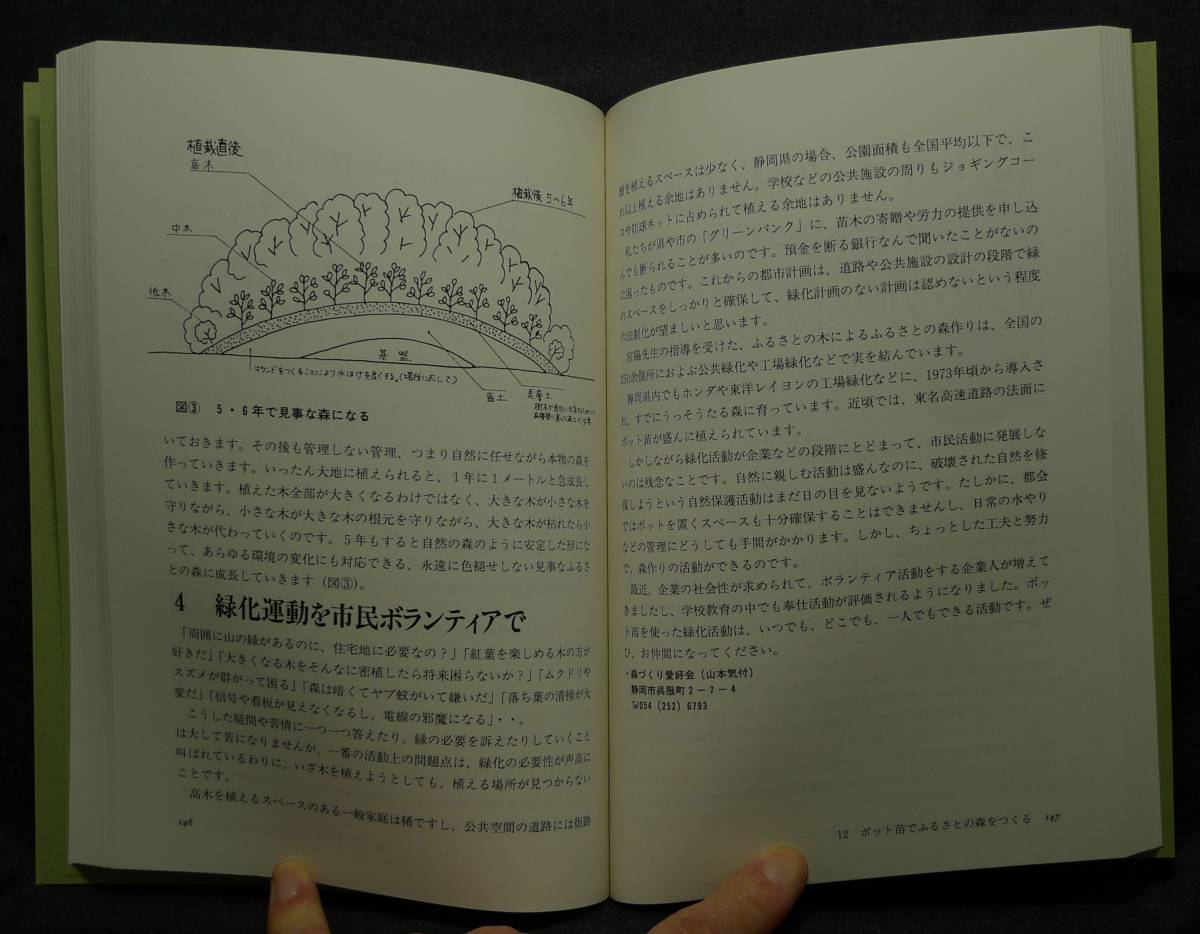 植栽直後
高木
植栽後5〜6年
中木
低木
基盤
マウンドをつくることにより水はけを良くする。(場所に応じて)
盛土
表層土
図③ 5・6年で見事な森になる
いておきます。その後も管理しない管理、つまり自然に任せながら本物の森を
作っていきます。いったん大地に植えられると、1年に1メートルと急成長し
ていきます。植えた木全部が大きくなるわけではなく、大きな木が小さな木を
守りながら、小さな木が大きな木の根元を守りながら、大きな木が枯れたら小
さな木が代わっていくのです。5年もすると自然の森のように安定した形にな
って、あらゆる環境の変化にも対応できる、永遠に色褪せしない見事なふるさ
との森に成長していきます(図③)。
4 緑化運動を市民ボランティアで
「周囲に山の緑があるのに、住宅地に必要なの?」「紅葉を楽しめる木の方が
好きだ」「大きくなる木をそんなに密植したら将来困らないか?」「ムクドリや
スズメが群がって困る」「森は暗くてヤブ蚊がいて嫌いだ」「落ち葉の清掃が大
変だ」「信号や看板が見えなくなるし、電線の邪魔になる」・・。
こうした疑問や苦情に一つ一つ答えたり、緑の必要を訴えたりしていくこと
は大して苦になりませんが、一番の活動上の問題点は、緑化の必要性が声高に
叫ばれているわりに、いざ木を植えようとしても、植える場所が見つからない
ことです。
高木を植えるスペースのある一般家庭は稀ですし、公共空間の道路には街路
146
樹を植えるスペースは少なく、静岡県の場合、公園面積も全国平均以下で、こ
れ以上植える余地はありません。学校などの公共施設の周りもジョギングコー
スや防球ネットに占められて植える余地はありません。
私たちが県や市の「グリーンバンク」に、苗木の寄贈や労力の提供を申し込
んでも断られることが多いのです。預金を断る銀行なんて聞いたことがないの
に困ったものです。これからの都市計画は、道路や公共施設の設計の段階で緑
のスペースをしっかりと確保して、緑化計画のない計画は認めないという程度
の法制化が望ましいと思います。
宮脇先生の指導を受けた、ふるさとの木によるふるさとの森作りは、全国の
250余個所におよぶ公共緑化や工場緑化などで実を結んでいます。
静岡県内でもホンダや東洋レイヨンの工場緑化などに、1973年頃から導入さ
れ、すでにうっそうたる森に育っています。近頃では、東名高速道路の法面に
ポット苗が盛んに植えられています。
しかしながら緑化活動が企業などの段階にとどまって、市民活動に発展しな
いのは残念なことです。自然に親しむ活動は盛んなのに、破壊された自然を修
復しようという自然保護活動はまだ日の目を見ないようです。たしかに、都会
ではポットを置くスペースも十分確保することはできませんし、日常の水やり
などの管理にどうしても手間がかかります。しかし、ちょっとした工夫と努力
で、森作りの活動ができるのです。
最近、企業の社会性が求められて、ボランティア活動をする企業人が増えて
きましたし、学校教育の中でも奉仕活動が評価されるようになりました。ポッ
ト苗を使った緑化活動は、いつでも、どこでも、一人でもできる活動です。ぜ
ひ、お仲間になってください。
・森づくり愛好会(山本気付)
静岡市呉服町2-7-4
℡054(252)6793
12 ポット苗でふるさとの森をつくる 147